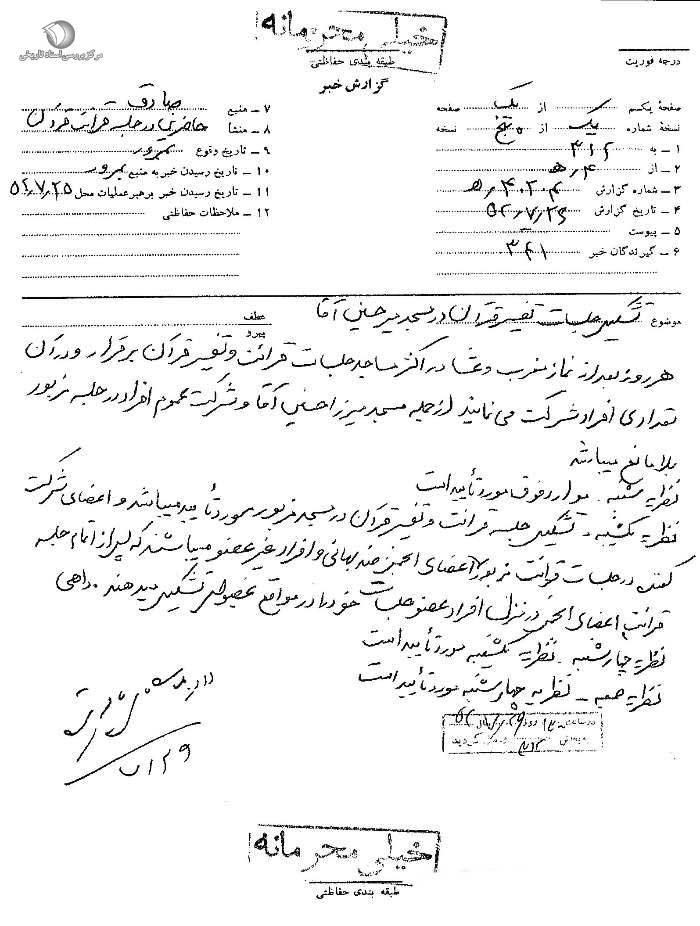 مرکز بررسی اسناد تاریخی
خیلی محرمانه
طبقه بندی حفاظتی
گزارش خبر
درجه فوریت
صفحه یکم از یک صفحه
نسخه شماره یک از پنج نسخه
۱ - به ۳۱۲
۲ - از ۴ ه
۳ - شماره گزارش
۴ - تاریخ گزارش
۵ - پیوست
۶ - گیرندگان خبر ۳۴۱
۷ - منبع صادق
۸ - منشأ حاضرین در جلسه قرائت قرآن
۹ - تاریخ وقوع
۱۰ - تاریخ رسیدن خبر به منبع
۱۱ - تاریخ رسیدن خبر برهبر عملیات محل ۵۲٫۷٫۲۵
۱۲ - ملاحظات حفاظتی
موضوع تشکیل جلسات تفسیر قرآن در مسجد میرحسنی آقا
عطف
پیرو
هر روز بعد از نماز مغرب و عشاء در اکثر مساجد جلسات قرائت و تفسیر قرآن برقرار و در آن
تعدادی افراد شرکت می نمایند از جمله مسجد میرزا حسنی آقا و شرکت عموم افراد در جلسه مزبور
بلامانع میباشد
نظریه شنبه . موارد فوق مورد تأیید است
نظریه یکشنبه - تشکیل جلسه قرائت و تفسیر قرآن در مسجد مزبور مورد تأیید میباشد و اعضای شرکت
کننده در جلسات قرائت مزبور اعضای انجمن ضد بهائی و افراد غیر عضو میباشند که پس از اتمام جلسه
قرائت اعضای انجمن در منزل افراد عضو جلسات خود را در مواقع تشکیل میدهند . داهی
نظریه چهارشنبه . نظریه یکشنبه مورد تأیید است
نظریه جمعه - نظریه چهارشنبه مورد تأیید است
۷/۲۹
خیلی محرمانه
طبقه بندی حفاظتی